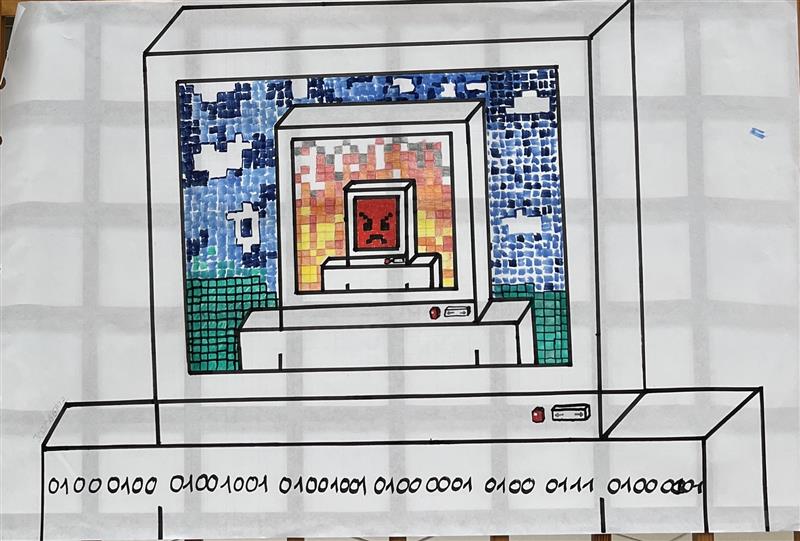 01000100 01001001 01001001 01000001 0100 0111 0100